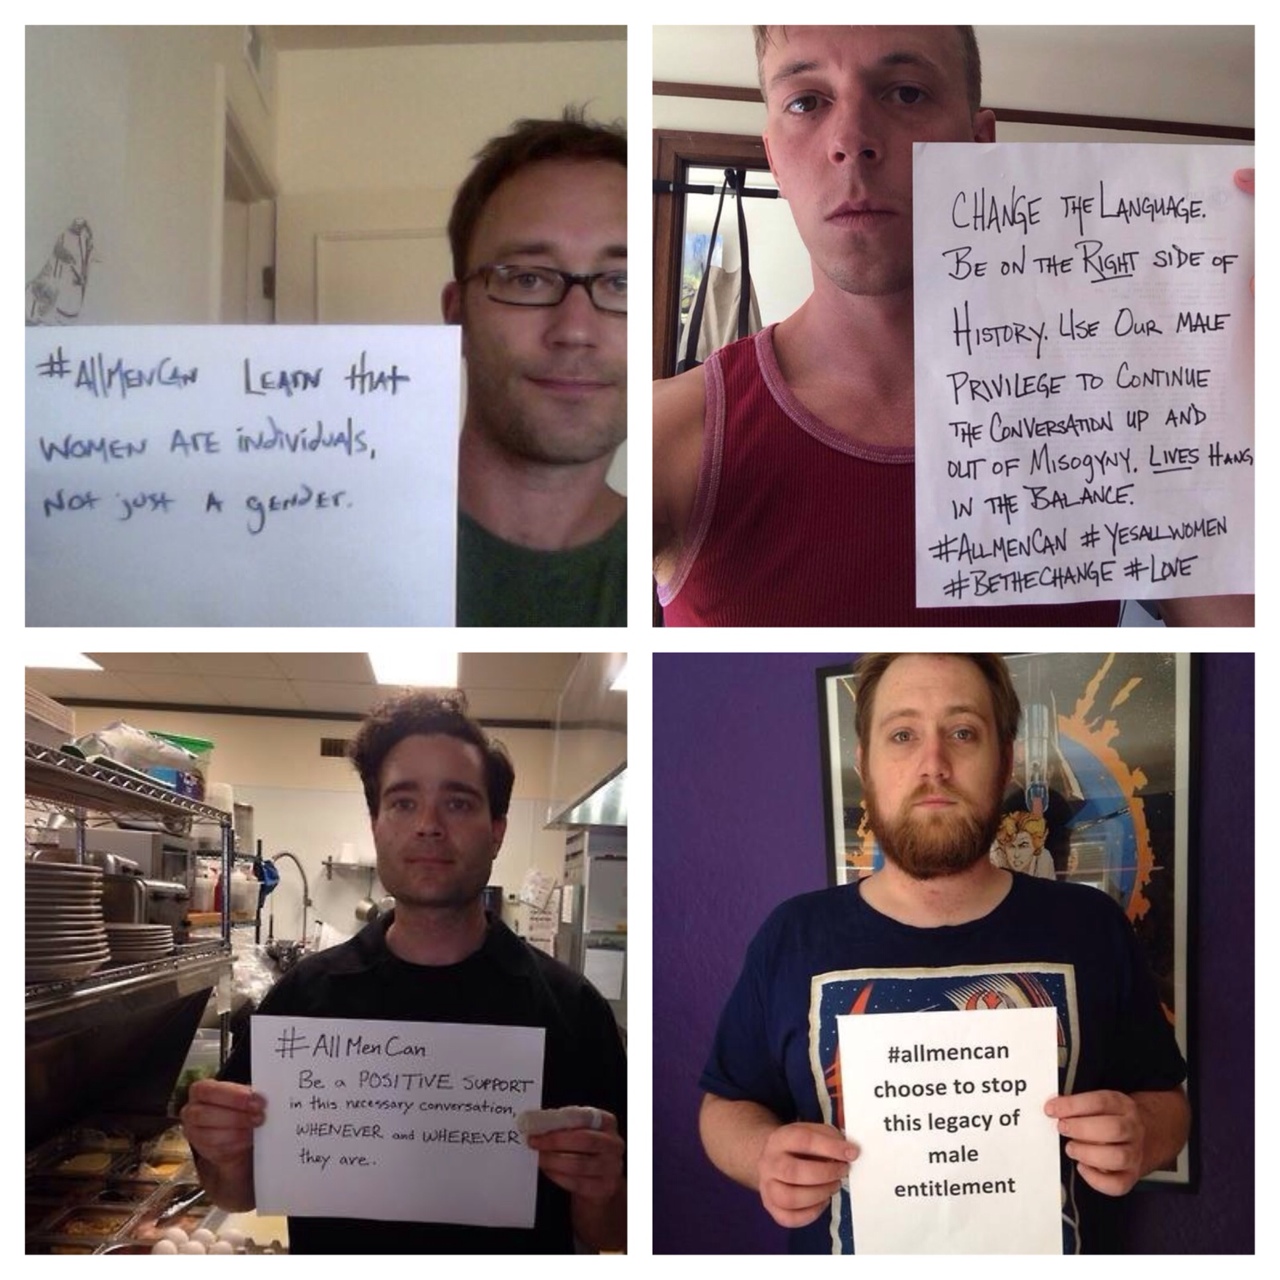 #AllMenCan Learn that
women are individuals,
not just a gender.
CHANGE THE LANGUAGE.
BE ON THE RIGHT SIDE OF
HISTORY. USE OUR MALE
PRIVILEGE TO CONTINUE
THE CONVERSATION UP AND
OUT OF MISOGYNY. LIVES HANG
IN THE BALANCE.
#ALLMENCAN #YESALLWOMEN
#BETHECHANGE #LOVE
#AllMenCan
Be a POSITIVE SUPPORT
in this necessary conversation,
WHENEVER and WHEREVER
they are.
#allmencan
choose to stop
this legacy of
male
entitlement